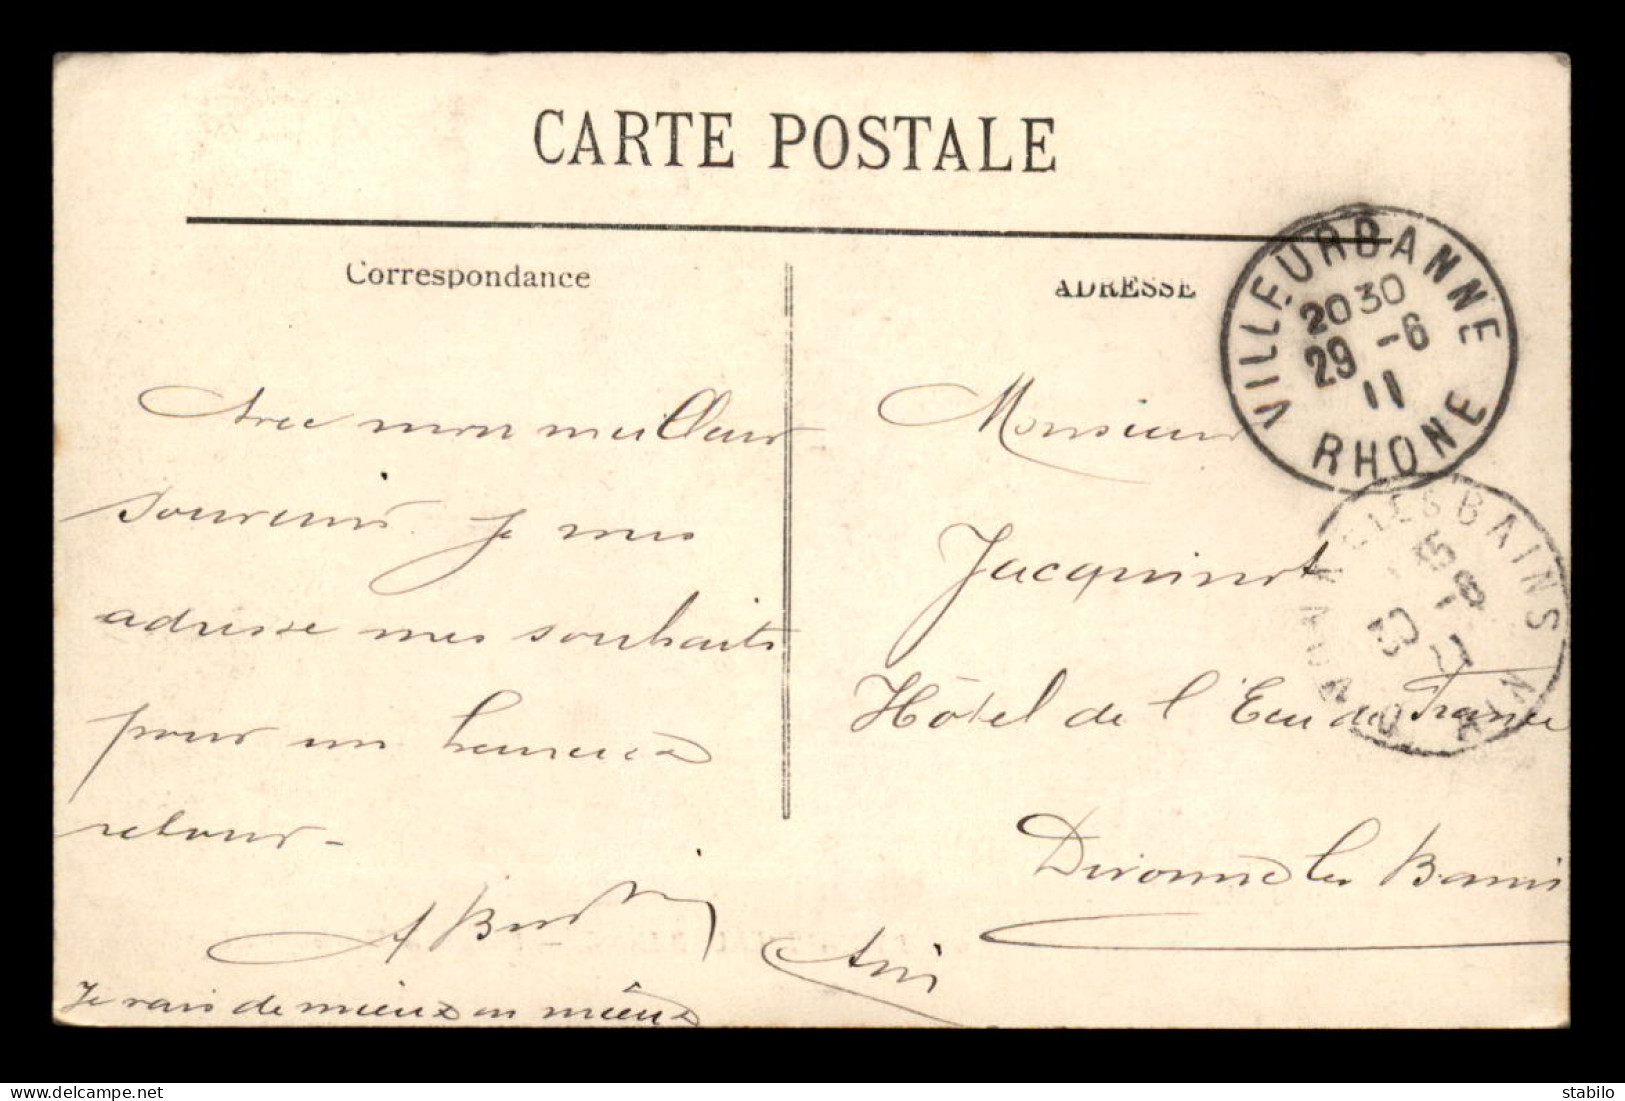 CARTE POSTALE
Correspondance
ADRESSE
VILLEURBANNE
2030
29 -6
11
RHONE
LES BAINS
AIN
Avec mon meilleur
souvenir je mes
adresse mes souhaits
pour un heureux
retour -
A
Je vais de mieux en mieux
Monsieur
Jacquinot
Hôtel de l'Eau de France
Divonne les Bains
Ain
stabilo